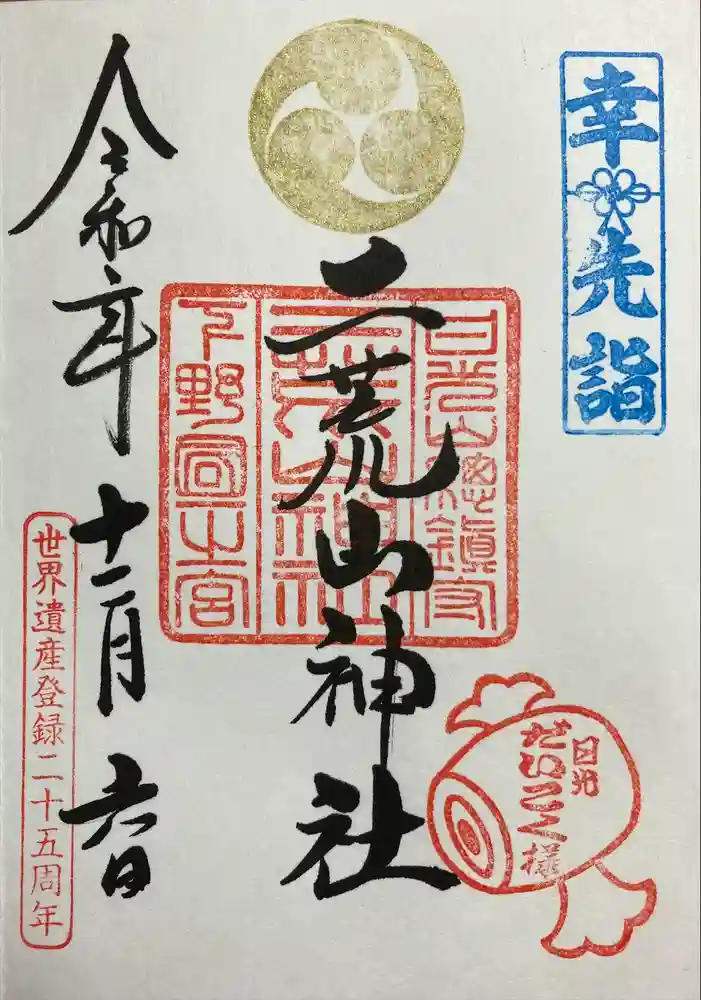 幸先詣
日光山總鎮守
二荒山神社
下野國一之宮
二荒山神社
日光
だいこく様
令和六年十一月六日
世界遺産登録二十五周年